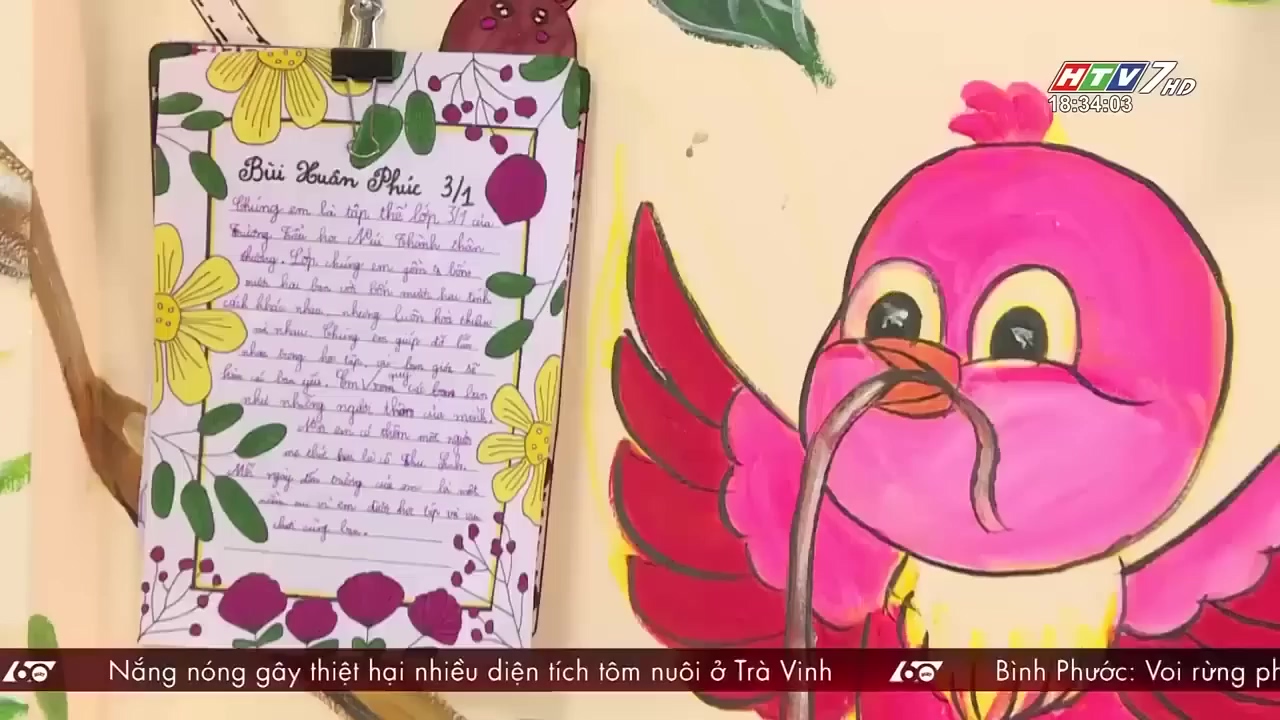 HTV7 HD
18:34:03
Bùi Xuân Phúc 3/1
Chúng em là tập thể lớp 3/1 của
Trường Tiểu học Núi Thành thân
thương. Lớp chúng em gồm bốn
mươi hai bạn với bốn mươi hai tính
cách khác nhau nhưng luôn hoà thuận
với nhau. Chúng em giúp đỡ lẫn
nhau trong học tập,
bạn yếu. Em xem các bạn
như những người thân của mình.
em có thêm một người
mẹ thứ hai là cô Thu
Mỗi ngày đến trường của em là một
niềm vui vì em được học tập và vui
chơi cùng bạn.
60 giây Nắng nóng gây thiệt hại nhiều diện tích tôm nuôi ở Trà Vinh 60 giây Bình Phước: Voi rừng ph